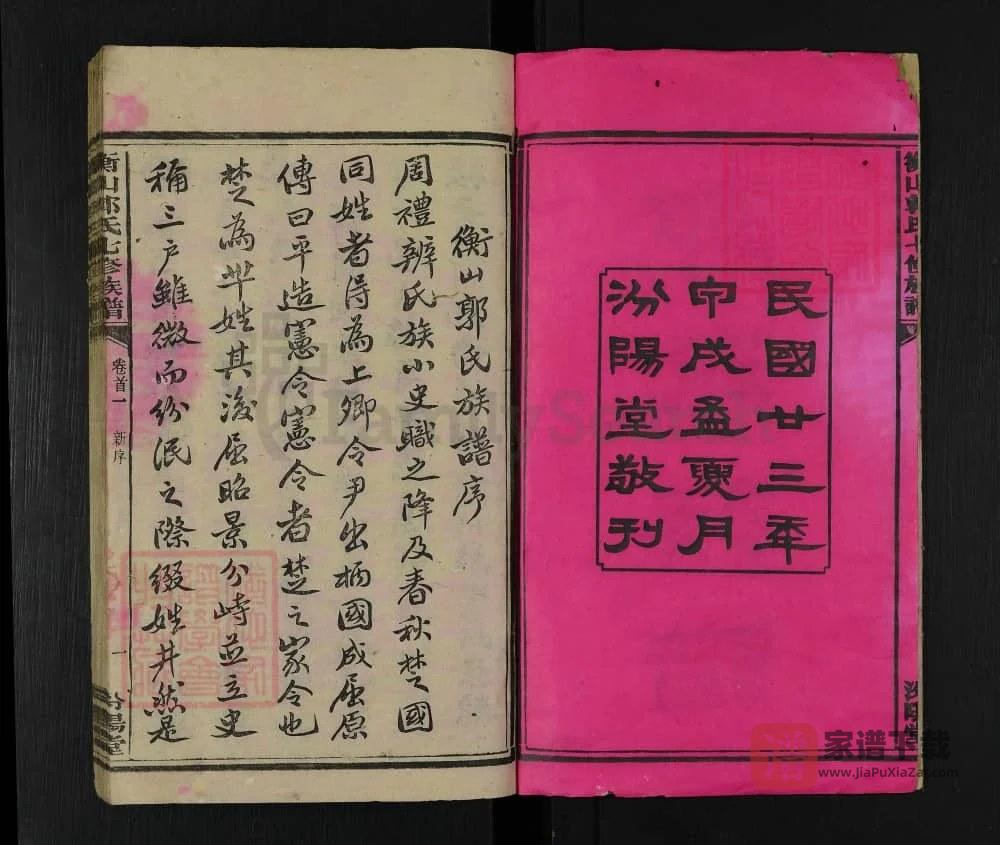 民國廿三年
甲戌孟夏月
汾陽堂敬刊
衡山郭氏族譜序
周禮辨氏族小史職之降及春秋楚國
同姓者得為上卿令尹出柄國成屈原
傳曰平造憲令憲令者楚之家令也
楚為羋姓其後屈昭景分峙並立史
稱三户雖微而紛泯之際綴姓井然是
衡山郭氏七修族譜
卷首一
新序
一
汾陽堂
家谱下载
www.JiaPuXiaZai.com